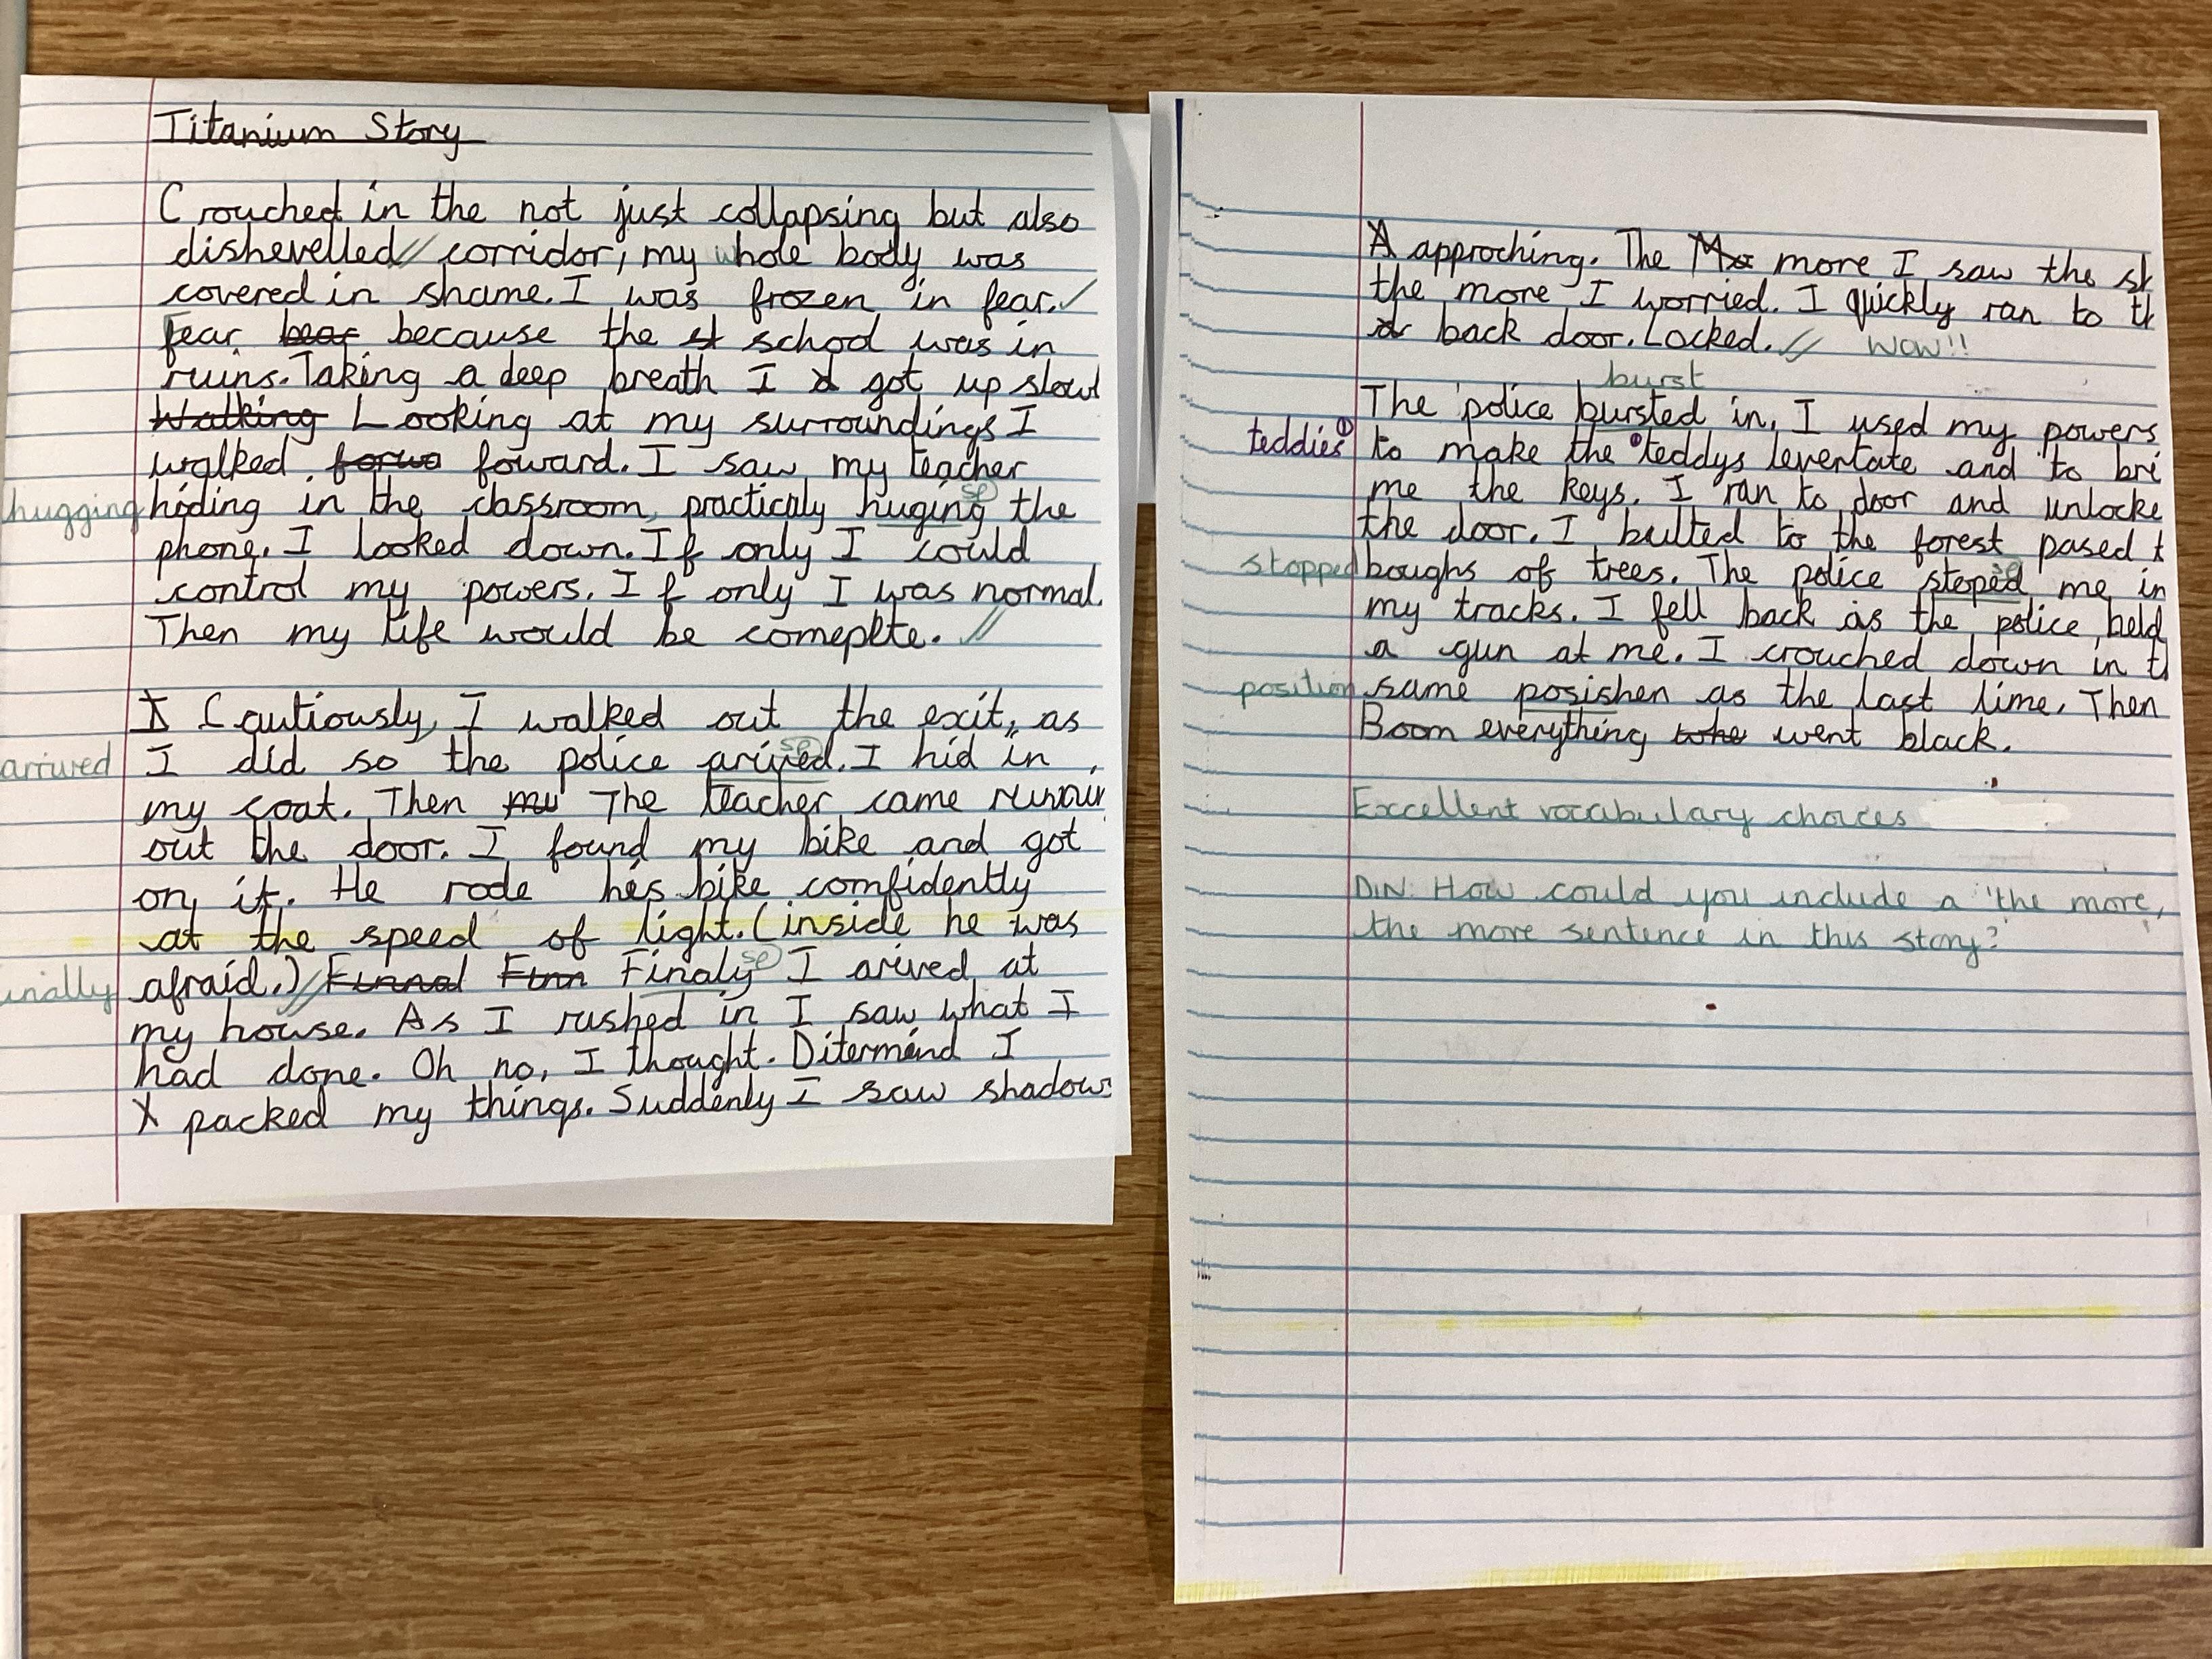 Titanium Story
Crouched in the not just collapsing but also
dishevelled // corridor, my whole body was
covered in shame. I was frozen in fear. ✓
Fear bear because the st school was in
ruins. Taking a deep breath I got up slowl
Walking Looking at my surroundings I
walked forwa foward. I saw my teacher
hugging hiding in the classroom, practicaly huging sp the
phone. I looked down. If only I could
control my powers. If only I was normal.
Then my life would be comeplte. //
I Cautiously, I walked out the exit, as
arrived I did so the police arived sp. I hid in
my coat. Then mu The teacher came
out the door. I found my bike and got
on it. He rode his bike comfidently
at the speed of light. (inside he was
inally afraid.) // Finnal Finn Finaly sp I arived at
my house. As I rushed in I saw what I
had done. Oh no, I thought. Ditermind I
packed my things. Suddenly I saw shadows
A approching. The Mo more I saw the sh
the more I worried. I quickly ran to th
back door. Locked. // WOW!!
burst
The police bursted in. I used my powers
teddies ① to make the teddys levertate and to bri
me the keys. I ran to door and unlocke
the door. I bulted to the forest pased t
stopped boughs of trees. The police stoped sp me in
my tracks. I fell back as the police held
a gun at me. I crouched down in th
position same posishen as the last time. Then
Boom everything whe went black.
Excellent vocabulary choices
DIN: How could you include a 'the more,
the more sentence in this story?